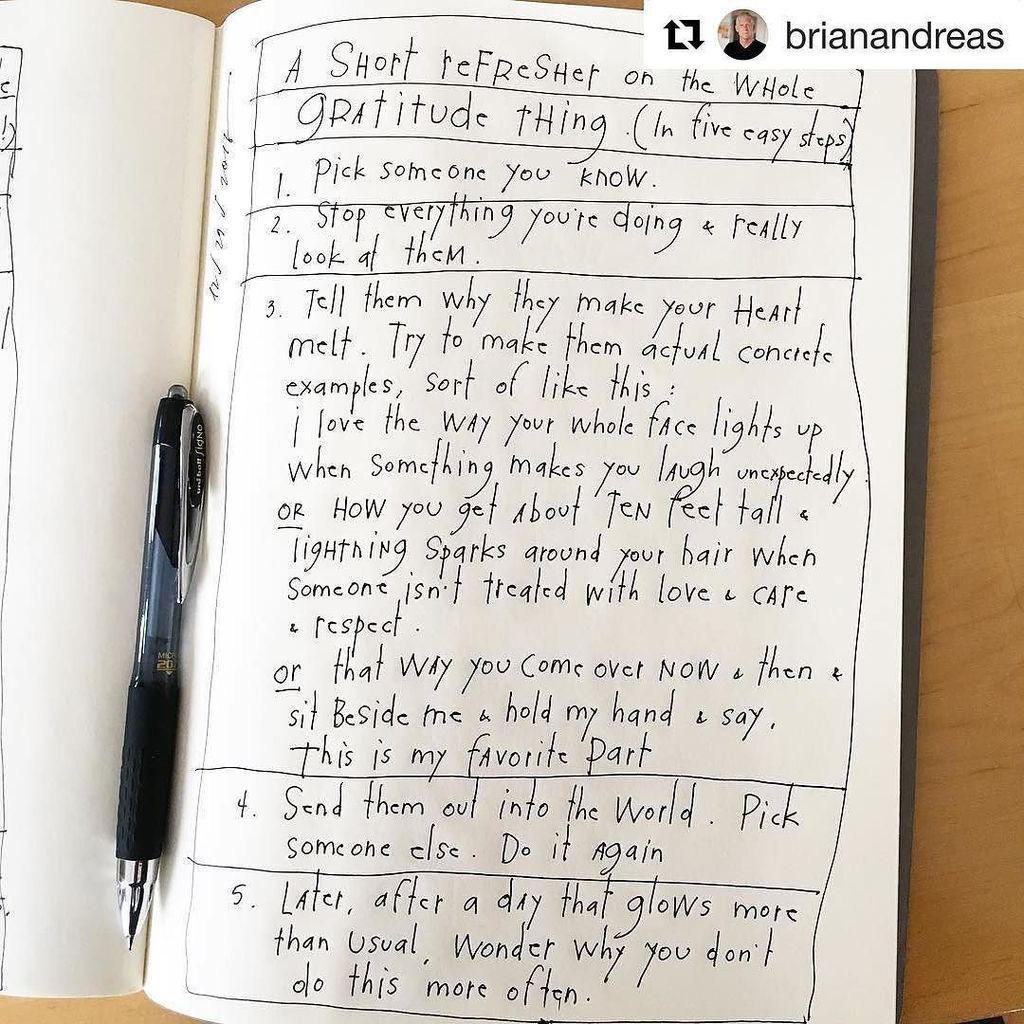 brianandreas
A SHort reFReSHer on the WHole
gRAtitude tHing. (In five easy steps)
1. Pick someone you know.
2. Stop everything you're doing & reAlly
look at theM.
3. Tell them why they make your HeArt
melt. Try to make them actuAl concrete
examples, sort of like this:
i love the WAY your whole fAce lights up
when something makes you lAugh unexpectedly
OR HOW you get About TEN feet tall &
lightning Sparks around your hair when
someone isn't treated with love & cAre
& respect.
or that WAY you come over NOW & then &
sit BeSide me & hold my hand & say,
This is my fAvorite part
4. Send them out into the World. Pick
someone else. Do it Again
5. LAter, after a dAy that glows more
than usual, wonder why you don't
do this more often.
uni-ball SIGNO